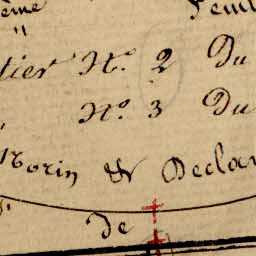 ème
"
tier N.° 2 Du
N.° 3 Du
Morin & Decla
De